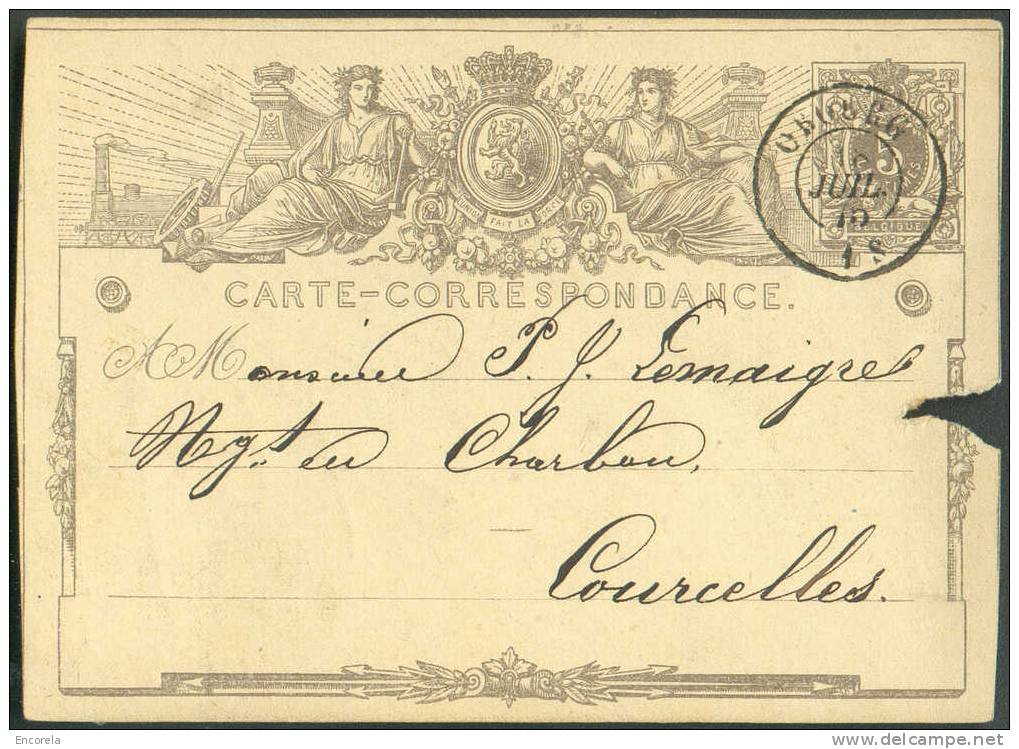 UNION FAIT LA FORCE
QEGUEG
6
JUIL.
75
1 S
5
BELGIQUE
CARTE-CORRESPONDANCE.
A Monsieur P. J. Lemaigre
Ngt. en Charbon,
Courcelles.
Encorela
www.delcampe.net